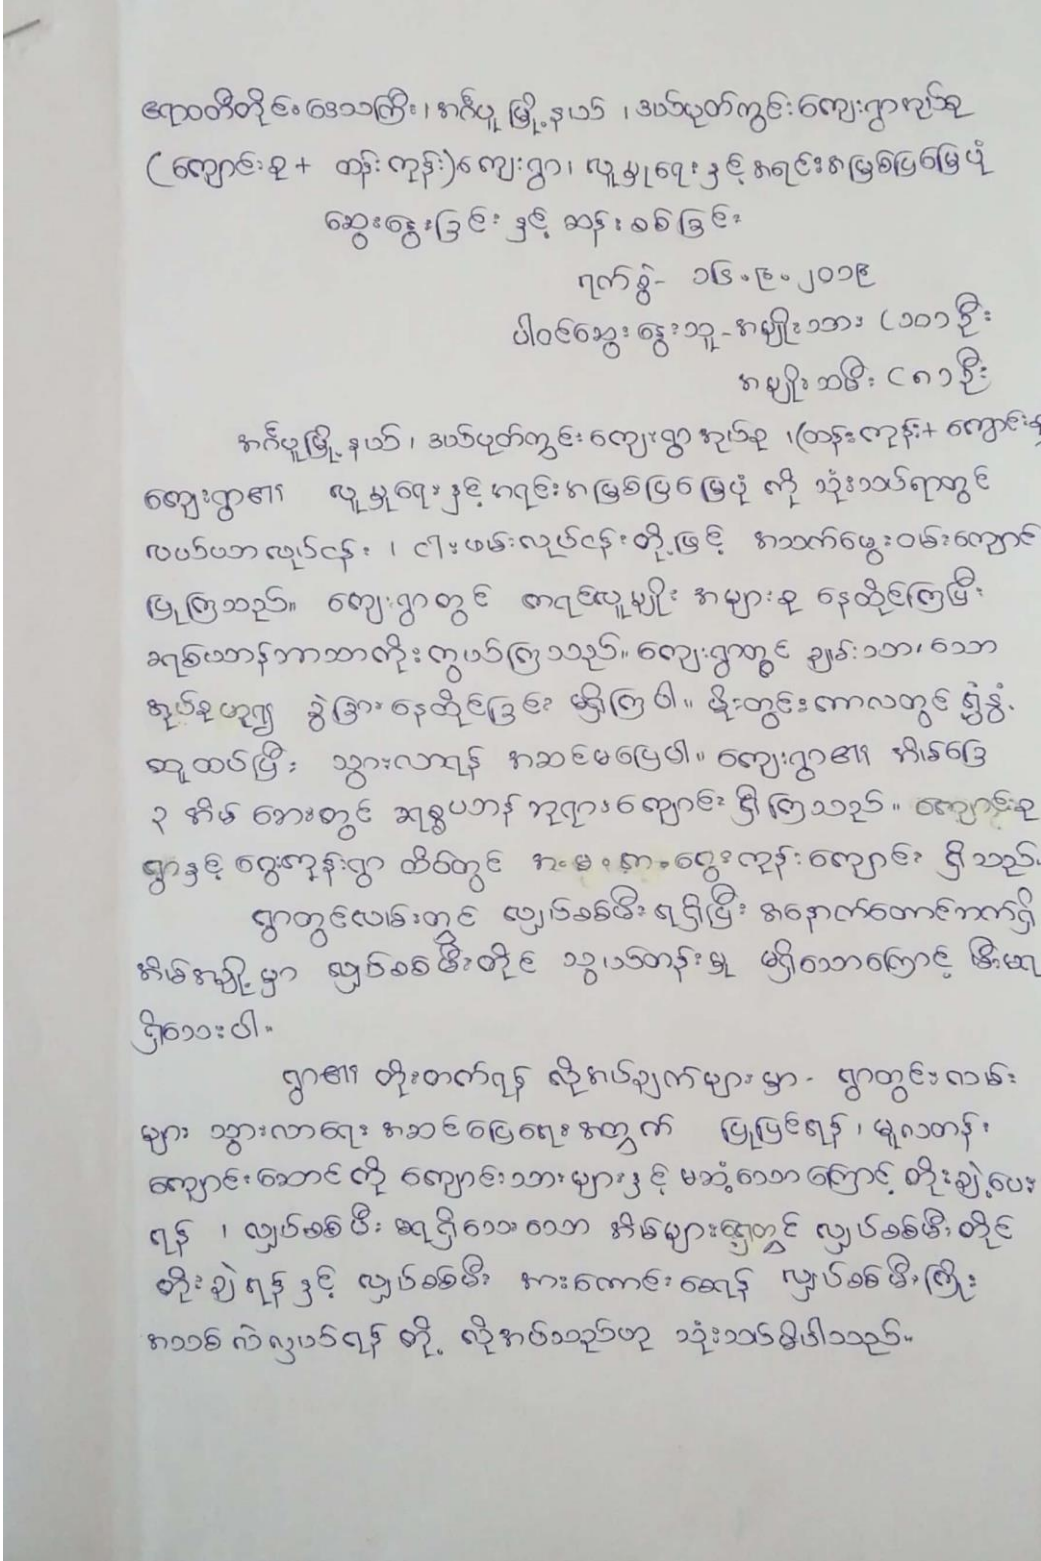 ဧရာဝတီတိုင်းဒေသကြီး၊ အင်္ဂပူမြို့နယ်၊ ဒယ်ပုတ်ကွင်းကျေးရွာအုပ်စု
(ကျောင်းစု + ထန်းကုန်း)ကျေးရွာ၊ လူမှုရေးနှင့်အရင်းအမြစ်ပြမြေပုံ
ဆွေးနွေးခြင်းနှင့် ဆန်းစစ်ခြင်း
ရက်စွဲ- ၁၆.၉.၂၀၁၉
ပါဝင်ဆွေးနွေးသူ-အမျိုးသား (၁၀၁ဦး
အမျိုးသမီး (၈၁ဦး
အင်္ဂပူမြို့နယ်၊ ဒယ်ပုတ်ကွင်းကျေးရွာအုပ်စု၊ (ထန်းကုန်း+ ကျောင်းစု
ကျေးရွာ၏ လူမှုရေးနှင့်အရင်းအမြစ်ပြမြေပုံ ကို သုံးသပ်ရာတွင်
လယ်ယာလုပ်ငန်း ၊ ငါးဖမ်းလုပ်ငန်းတို့ဖြင့် အသက်မွေးဝမ်းကျောင်း
ပြုကြသည်။ ကျေးရွာတွင် ကရင်လူမျိုး အများစု နေထိုင်ကြပြီး
ခရစ်ယာန်ဘာသာကိုးကွယ်ကြသည်။ ကျေးရွာတွင် ချမ်းသာသော
အုပ်စုဟူ၍ ခွဲခြားနေထိုင်ခြင်း မရှိကြပါ။ မိုးတွင်းကာလတွင် ရွှံ့နွံ
ထူထပ်ပြီး သွားလာရန် အဆင်မပြေပါ။ ကျေးရွာ၏ အိမ်ခြေ
၃ အိမ် ဘေးတွင် ခရစ်ယာန် ဘုရားကျောင်း ရှိကြသည်။ ကျောင်းစု
ရွာနှင့် ဝှေးကုန်းရွာ ထိပ်တွင် အ.မ.က.ဝှေးကုန်းကျောင်း ရှိသည်။
ရွာတွင်းလမ်းတွင် လျှပ်စစ်မီးရရှိပြီး အနောက်တောင်ဘက်ရှိ
အိမ်အချို့မှာ လျှပ်စစ်မီးတိုင် သွယ်တန်းမှု မရှိသောကြောင့် မီးမရ
ရှိသေးပါ။
ရွာ၏ တိုးတက်ရန် လိုအပ်ချက်များမှာ- ရွာတွင်းလမ်း
များ သွားလာရေး အဆင်ပြေရေးအတွက် ပြုပြင်ရန်၊ မူလတန်း
ကျောင်းဆောင်ကို ကျောင်းသားများနှင့် မဆံ့သောကြောင့် တိုးချဲ့ပေး
ရန် ၊ လျှပ်စစ်မီး မရရှိသေးသော အိမ်များရှေ့တွင် လျှပ်စစ်မီးတိုင်
တိုးချဲ့ရန်နှင့် လျှပ်စစ်မီး အားကောင်းစေရန် လျှပ်စစ်မီးကြိုး
အသစ်လဲလှယ်ရန် တို့ လိုအပ်သည်ဟု သုံးသပ်မိပါသည်။